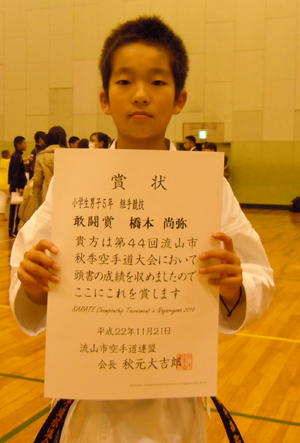 賞状
小学生男子5年 組手競技
敢闘賞 橋本 尚弥
貴方は第44回流山市
秋季空手道大会において
頭書の成績を収めましたので
ここにこれを賞します
KARATE Championship Tournament in Nagareyama 2010
平成22年11月21日
流山市空手道連盟
会長 秋元大吉郎